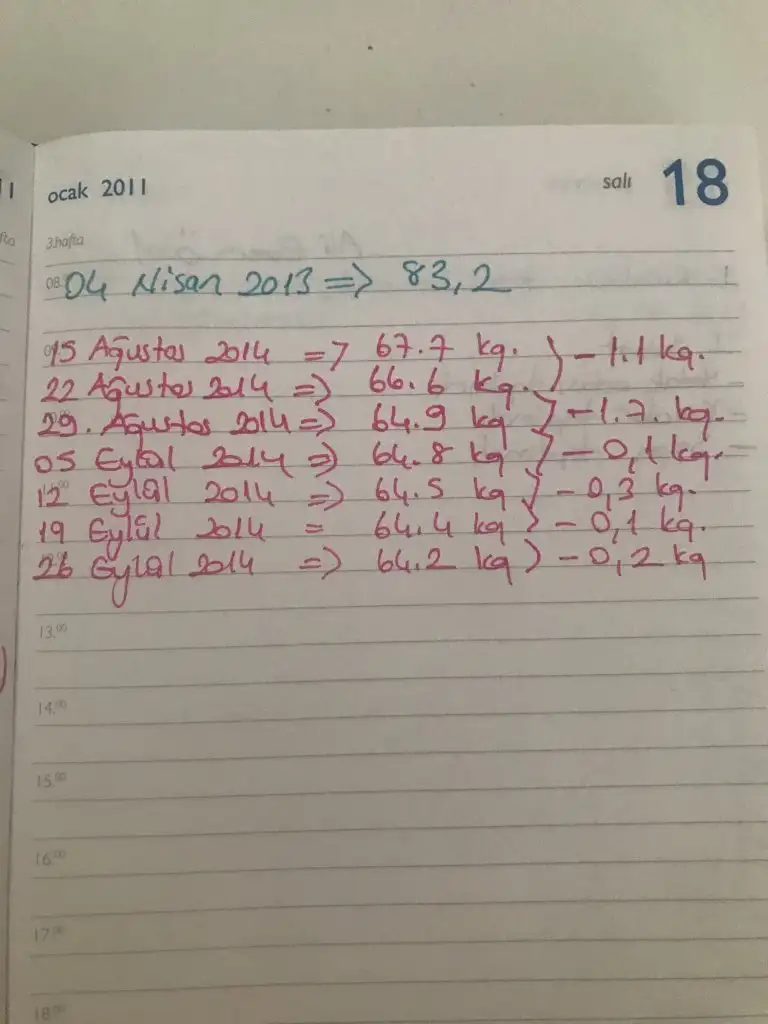 ocak 2011 salı 18
3.hafta
08. 04 Nisan 2013 => 83,2
15 Ağustos 2014 => 67.7 kg. ) - 1.1 kg.
22 Ağustos 2014 => 66.6 kg.
29. Ağustos 2014 => 64.9 kg } - 1.7. kg.
05 Eylül 2014 => 64.8 kg } - 0,1 kg.
12 Eylül 2014 => 64.5 kg } - 0,3 kg.
19 Eylül 2014 = 64.4 kg } - 0,1 kg.
26 Eylül 2014 => 64.2 kg ) - 0,2 kg
13.00
14.00
15.00
16.00
17.00
18.00